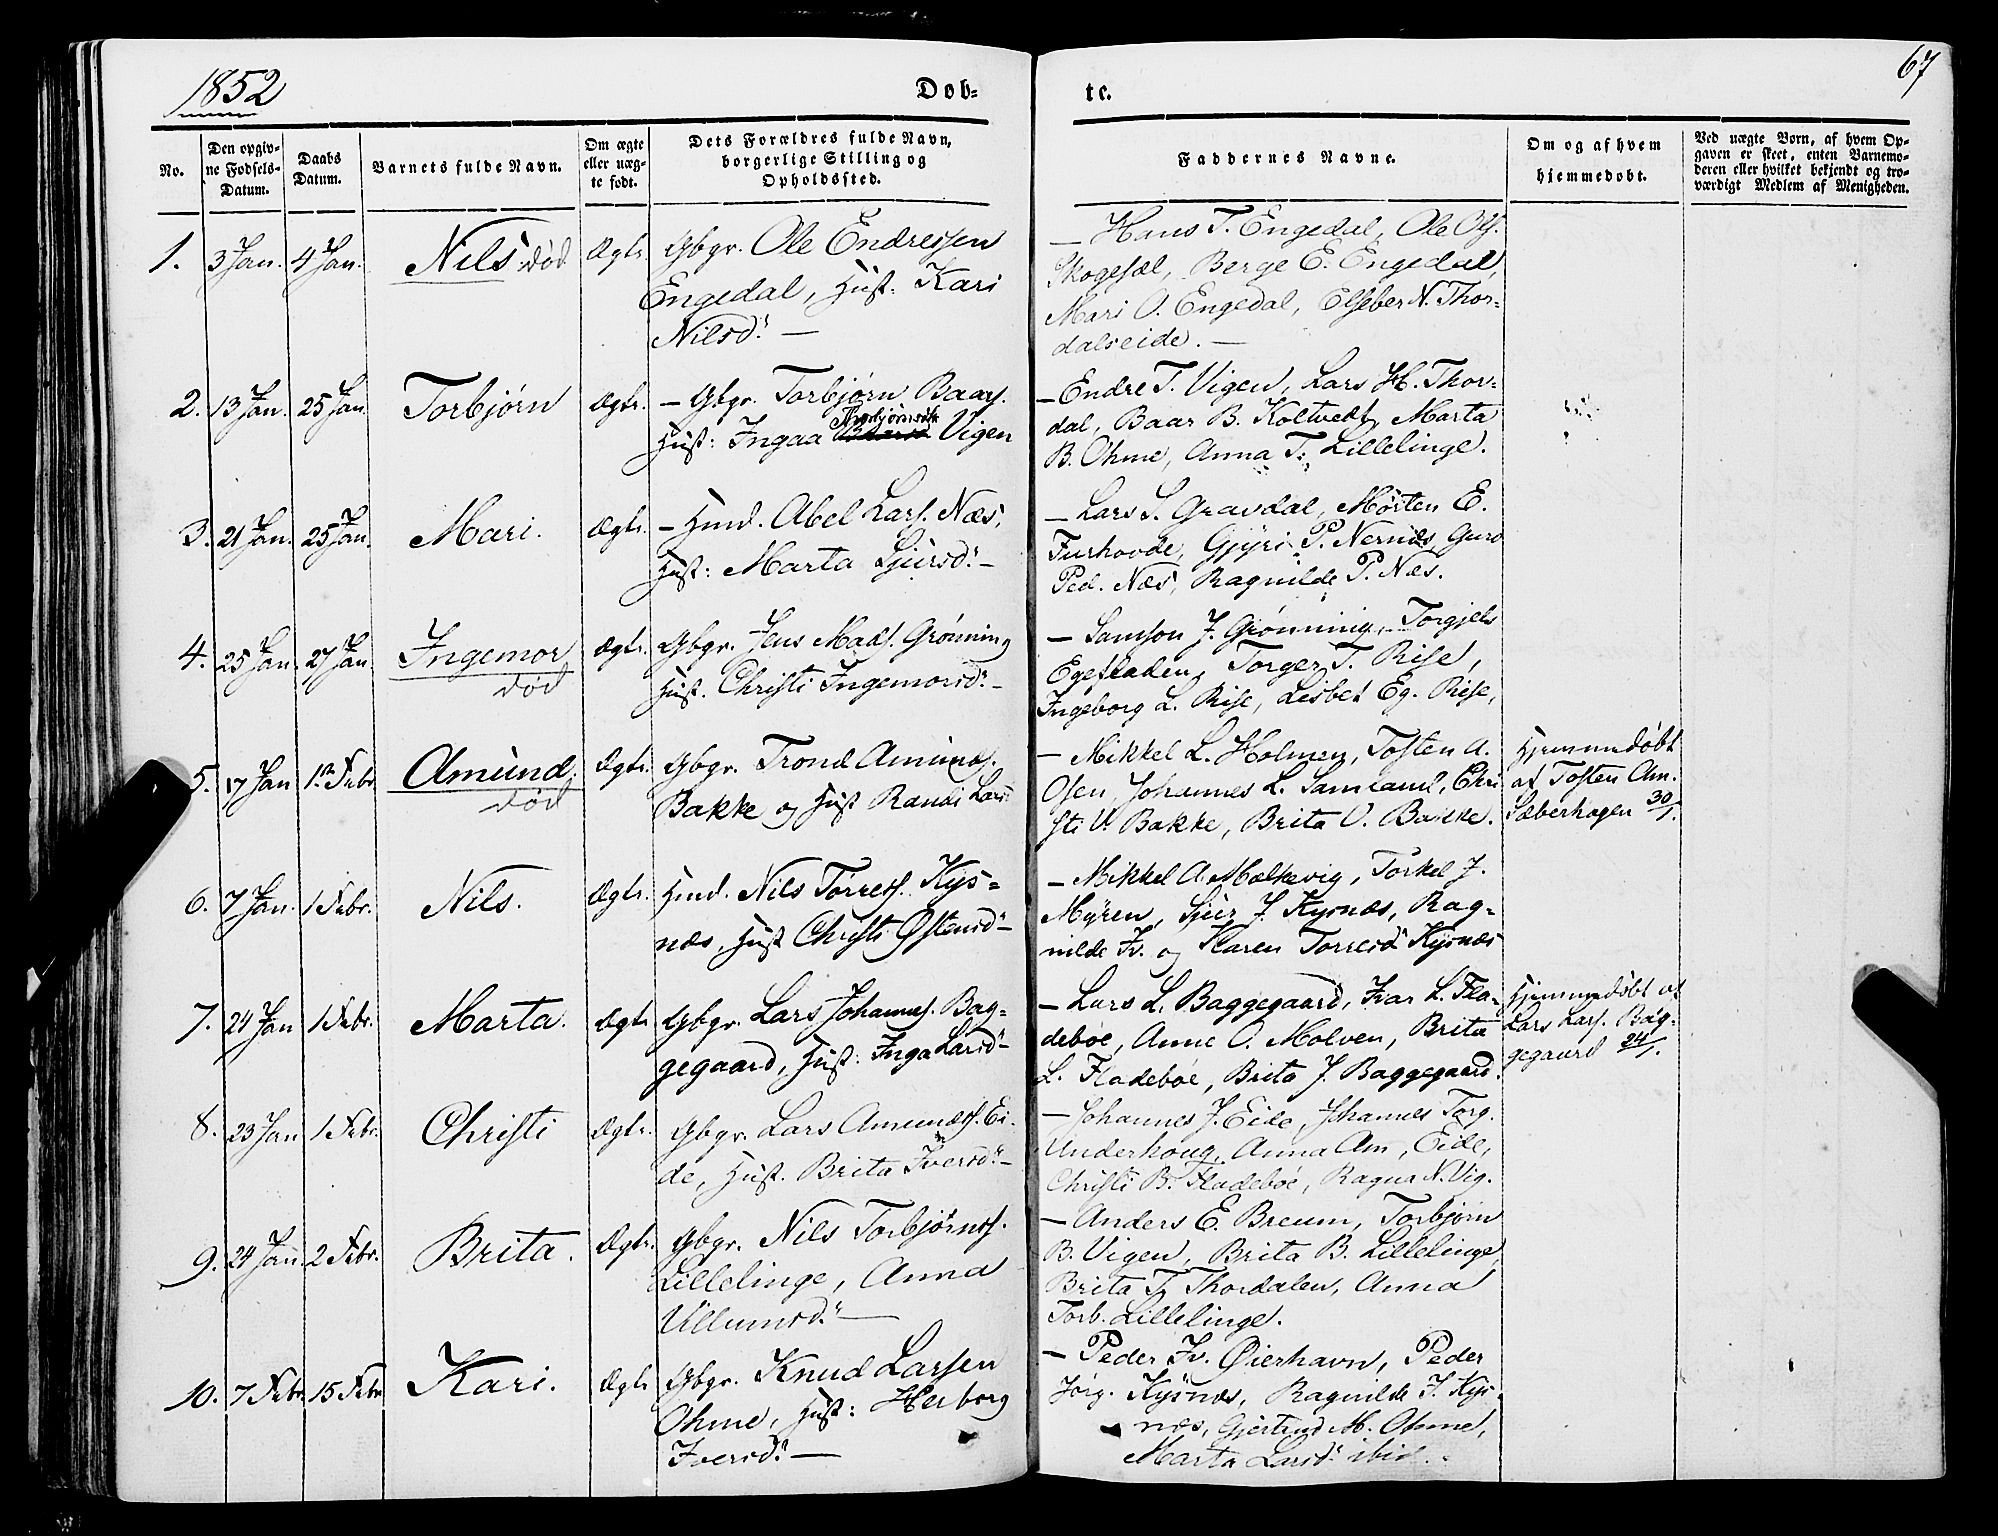 1852
Døb-
te.
67
No.
Den opgiv-
ne Fødsels-
Datum.
Daabs
Datum.
Barnets fulde Navn.
Om ægte
eller uæg-
te født.
Dets Forældres fulde Navn,
borgerlige Stilling og
Opholdssted.
Faddernes Navne.
Om og af hvem
hjemmedøbt.
Ved uægte Børn, af hvem Op-
gaven er skeet, enten Barnemo-
deren eller hvilket bekjendt og tro-
værdigt Medlem af Menigheden.
1. 3 Jan. 4 Jan. Nils død Ægte. Gbgr. Ole Endressen
Engedal, Hust. Kari
Nilsd. —
— Hans T. Engedal, Ole Ols.
Skogesæl, Berge E. Engedal,
Mari O. Engedal, Elseber N. Thor=
dalseide. —
2. 13 Jan. 25 Jan. Torbjørn Ægte. — Gbgr. Torbjørn Baars.
Hust: Ingaa Thorbjørnsdtr Vigen
— Endre T. Vigen, Lars H. Thor=
dal, Baar B. Koltvedt, Marta
B. Ohme, Anna T. Lillelinge.
3. 21 Jan. 25 Jan. Mari. Ægte. — Hmd. Abel Lars. Næs,
Hust: Marta Sjursd. —
— Lars S. Gravdal, Mørten E.
Furhovde, Gjyri P. Nernæs, Guro
Ped. Næs, Ragnilde P. Næs.
4. 25 Jan. 27 Jan. Ingemor Ægte. Gbgr. Jens Mads. Grønning
død
Hust. Christi Ingemorsd. —
— Samson J. Grønning, Torgjels
Egefladen, Torger T. Rise,
Ingeborg L. Rise, Lisbet Eg. Rise,
5. 17 Jan 1ste Febr Amund. Ægte. Gbgr. Trond Amunds.
død
Bakke og Hust Randi Larsd
— Mikkel L. Holmen, Tosten A.
Osen, Johannes L. Samland, Chri
sti V. Bakke, Brita O. Bakke.
Hjemmedøbt
af Tosten Am.
Sæberhagen 30/1.
6. 7 Jan. 1 Febr. Nils. Ægte. Hmd. Nils Torres. Kys=
næs, Hust Christi Østensd —
— Mikkel A. Mælkevig, Torkel J.
Myren, Sjur J. Kysnæs, Rag=
nilde Iv. og Karen Torresd Kysnæs
7. 24 Jan 1 Febr. Marta. Ægte Gbgr. Lars Johannes. Bag=
gegaard, Hust: Inga Larsd —
— Lars L. Baggegaard, Ivar L. Fla=
debøe, Anne O. Molven, Brita
L. Fladebøe, Brita J. Baggegaard.
Hjemmedøbt af
Lars Lars. Bag=
gegaard 24/1.
8. 23 Jan 1 Febr. Christi Ægte. Gbgr. Lars Amunds. Ei=
de, Hust. Brita Iversd. —
— Johannes J. Eide, Johannes Torg.
Underhoug, Anna Am, Eide,
Christi B. Fladebøe, Ragna N. Vig.
9. 24 Jan 2 Febr. Brita. Ægte. Gbgr. Nils Torbjørns.
Lillelinge, Anna
Villumsd. —
— Anders E. Breum, Torbjørn
B. Vigen, Brita B. Lillelinge,
Brita T. Thordalen, Anna
Torb. Lillelinge.
10. 7 Febr 15 Febr Kari. Ægte Gbgr. Knud Larsen
Ohme, Hust: Herborg
Iversd. —
— Peder Iv. Øierhavn, Peder
Jørg. Kysnæs, Ragnilde J. Kys=
næs, Gjertrud M. Ohme,
Marta Larsd. ibid.